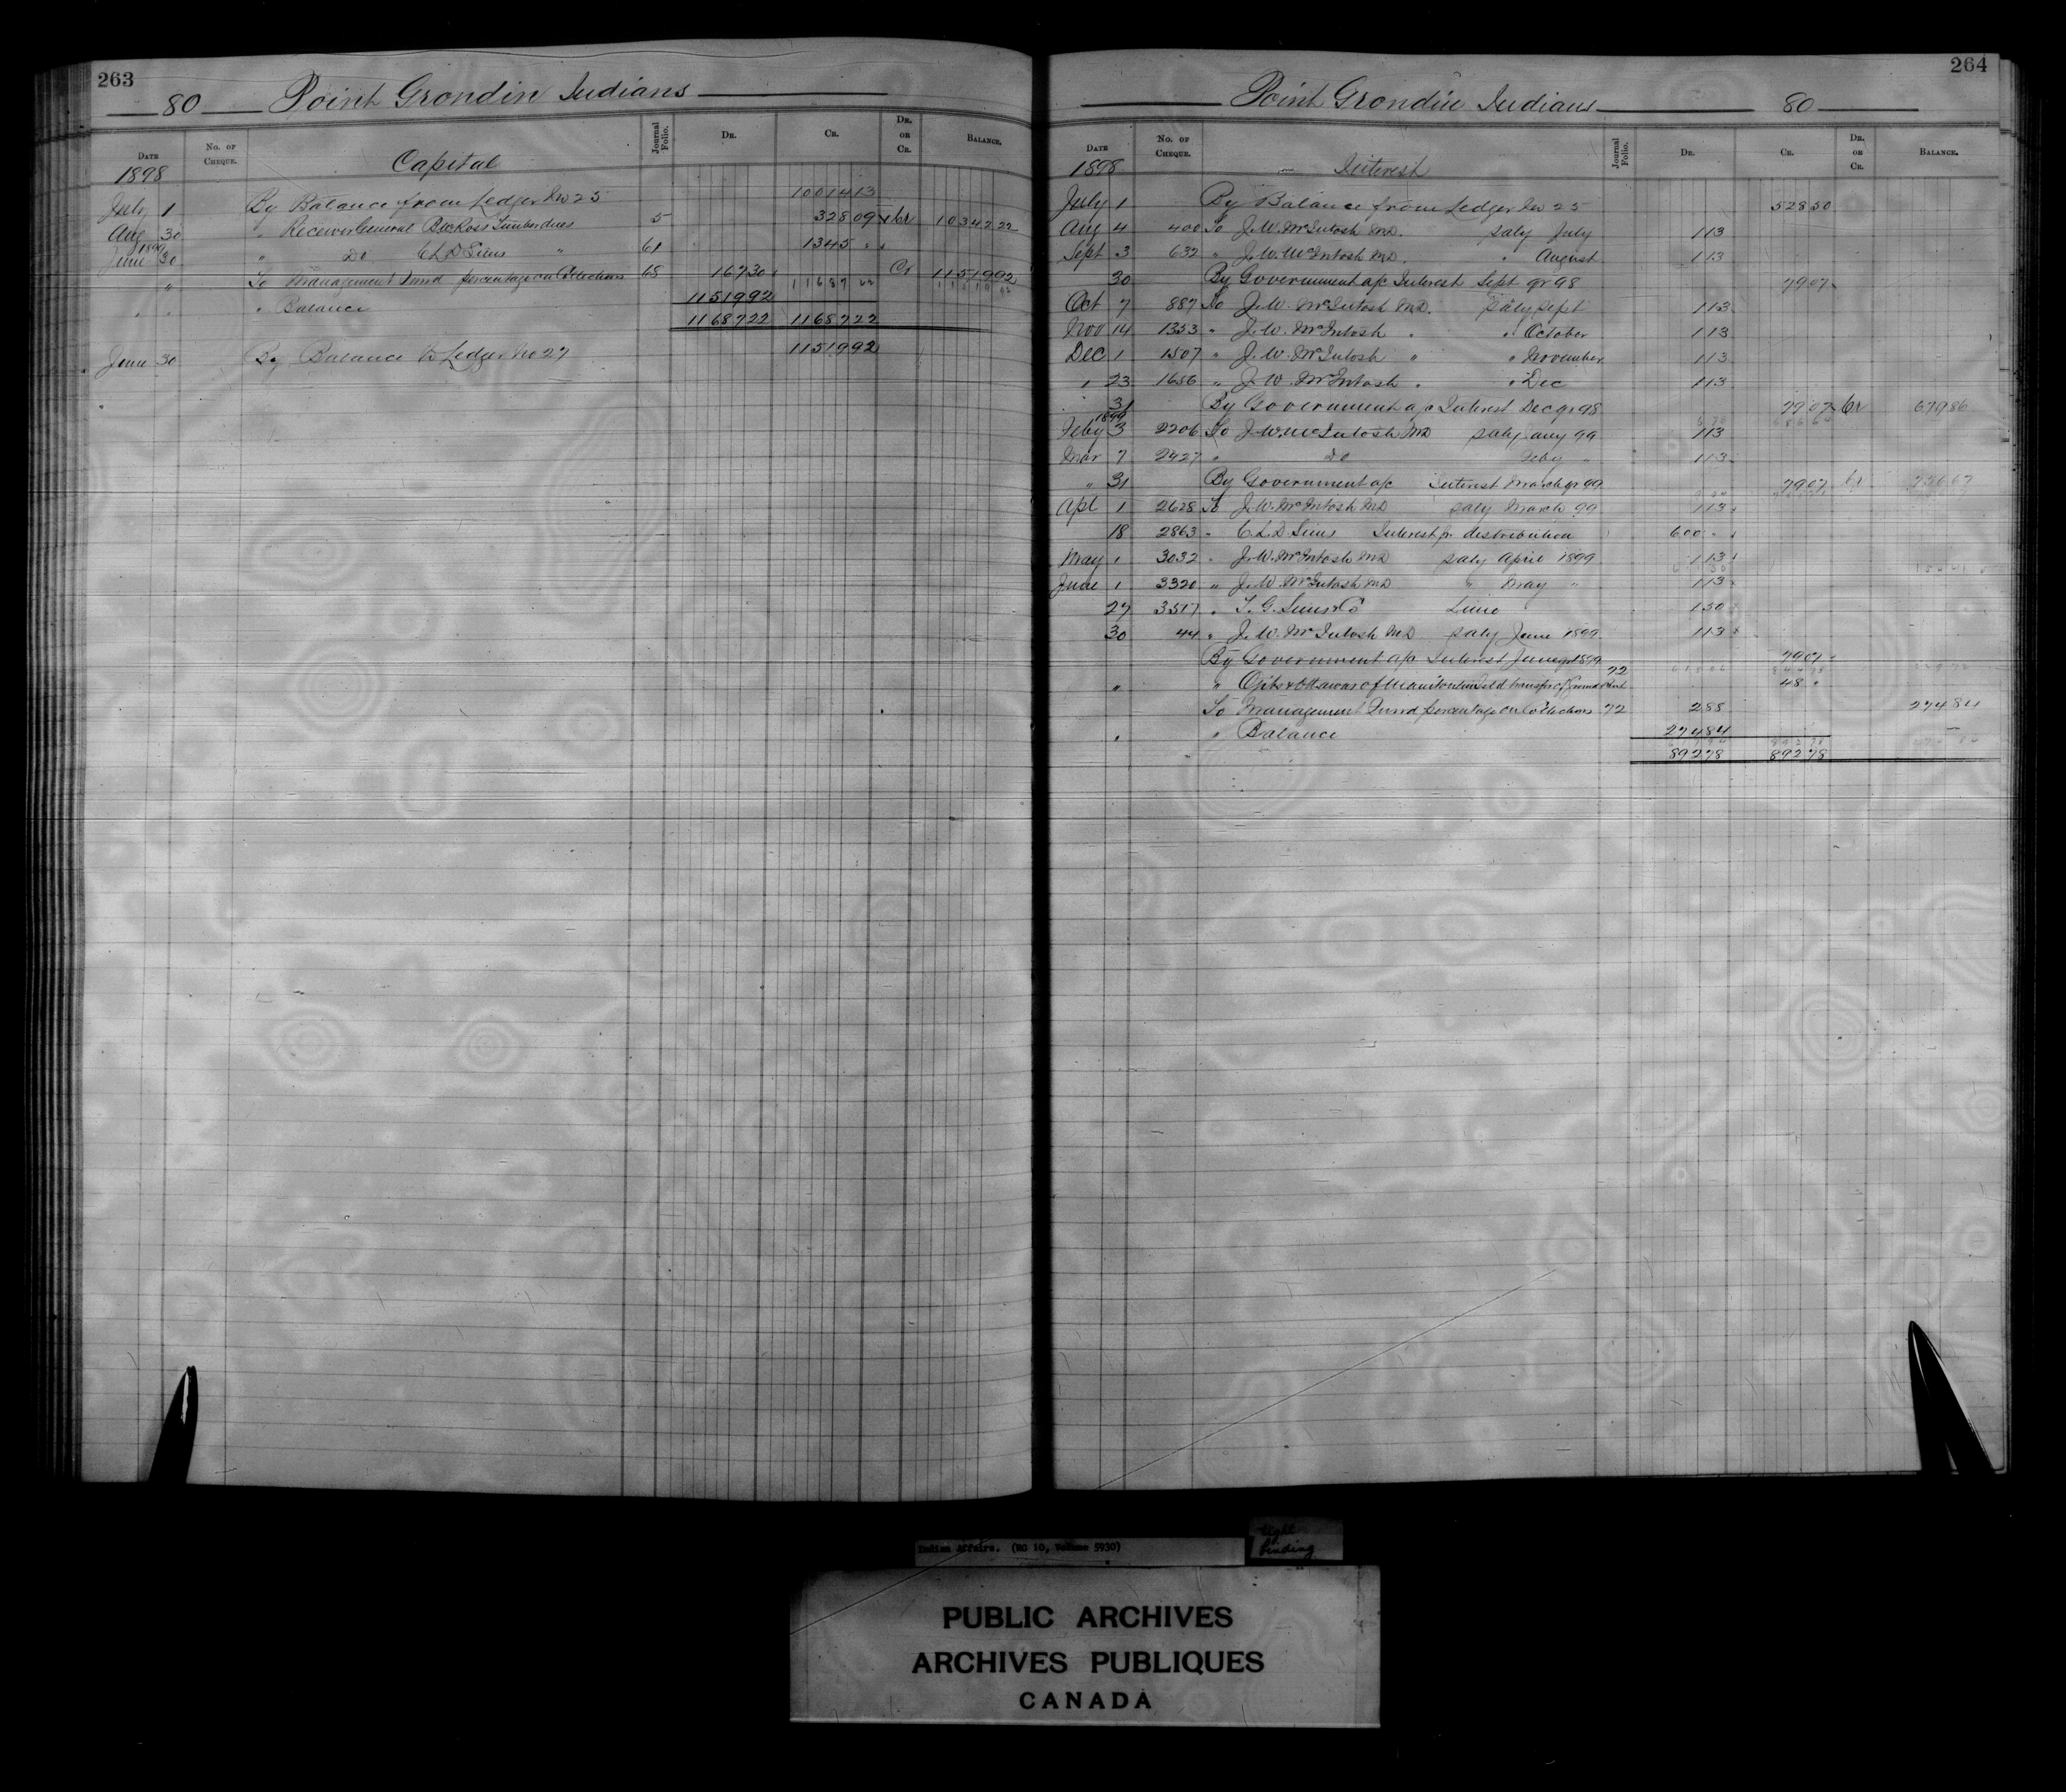 263
80 Point Grondin Indians
Date No. of Cheque. Capital Journal Folio. Dr. Cr. Dr. or Cr. Balance.
1898
July 1 By Balance from Ledger No 25 10014 13
Aug 30 " Receiver General Ross Timber dues 5 328 09 Cr 10342 22
1899
June 30 " Do C L D Sims " 61 1345 "
" To Management Fund percentage on Collections 68 167 30 Cr 11519 92
" " " Balance 11519 92
11687 22 11687 22
June 30 By Balance to Ledger No 27 11519 92
264
Point Grondin Indians 80
Date No. of Cheque. Interest Journal Folio. Dr. Cr. Dr. or Cr. Balance.
1898
July 1 By Balance from Ledger No 25 528 50
Aug 4 400 To J. W. McIntosh MD. saly July 1 13
Sept 3 632 " J. W. McIntosh MD. " August 1 13
30 By Government a/c Interest Sept qr 98 79 07
Oct 7 887 To J. W. McIntosh MD. saly Sept 1 13
Nov 14 1353 " J. W. McIntosh " " October 1 13
Dec 1 1507 " J. W. McIntosh " " November 1 13
" 23 1656 " J. W. McIntosh " " Dec 1 13
31 By Government a/c Interest Dec qr 98 79 07 Cr 679 86
1899
Feby 3 2206 To J. W. McIntosh MD saly Jany 99 1 13
Mar 7 2427 " Do Feby " 1 13
" 31 By Government a/c Interest March qr 99 79 07 Cr
Apl 1 2628 To J. W. McIntosh MD saly March 99 1 13
18 2863 " C L D Sims Interest for distribution 600 "
May 1 3032 " J. W. McIntosh MD saly April 1899 1 13
June 1 3320 " J. W. McIntosh MD " May " 1 13
27 3517 " T. G. Sims & Co Lime 1 50
30 44 " J. W. McIntosh MD saly June 1899 1 13
By Government a/c Interest June qr 1899 79 07
" " Ojibs & Ottawas of Manitoulin Isld transfer of Ground Rent 72 48 "
To Management Fund percentage on Collections 72 2 88 274 84
" " Balance 274 84
892 78 892 78
Indian Affairs. (RG 10, Volume 5930)
tight
binding
PUBLIC ARCHIVES
ARCHIVES PUBLIQUES
CANADA